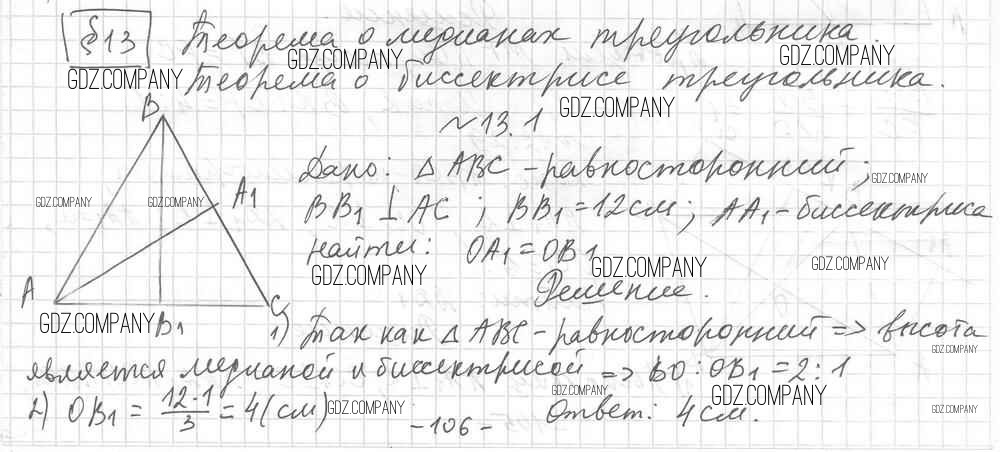 § 13 Теорема о медианах треугольника.
GDZ.COMPANY GDZ.COMPANY GDZ.COMPANY
Теорема о биссектрисе треугольника.
GDZ.COMPANY
B
~13.1
Дано: △ ABC - равносторонний;
GDZ.COMPANY
A1
GDZ.COMPANY GDZ.COMPANY
BB1 ⊥ AC ; BB1 = 12 см; AA1 - биссектриса
Найти: OA1 = OB1
GDZ.COMPANY GDZ.COMPANY GDZ.COMPANY
A
C
Решение.
GDZ.COMPANY B1
1) Так как △ ABC - равносторонний => высота
GDZ.COMPANY
является медианой и биссектрисой => BO : OB1 = 2 : 1
GDZ.COMPANY GDZ.COMPANY
2) OB1 = 12·1/3 = 4 (см) GDZ.COMPANY Ответ: 4 см.
GDZ.COMPANY
- 106 -